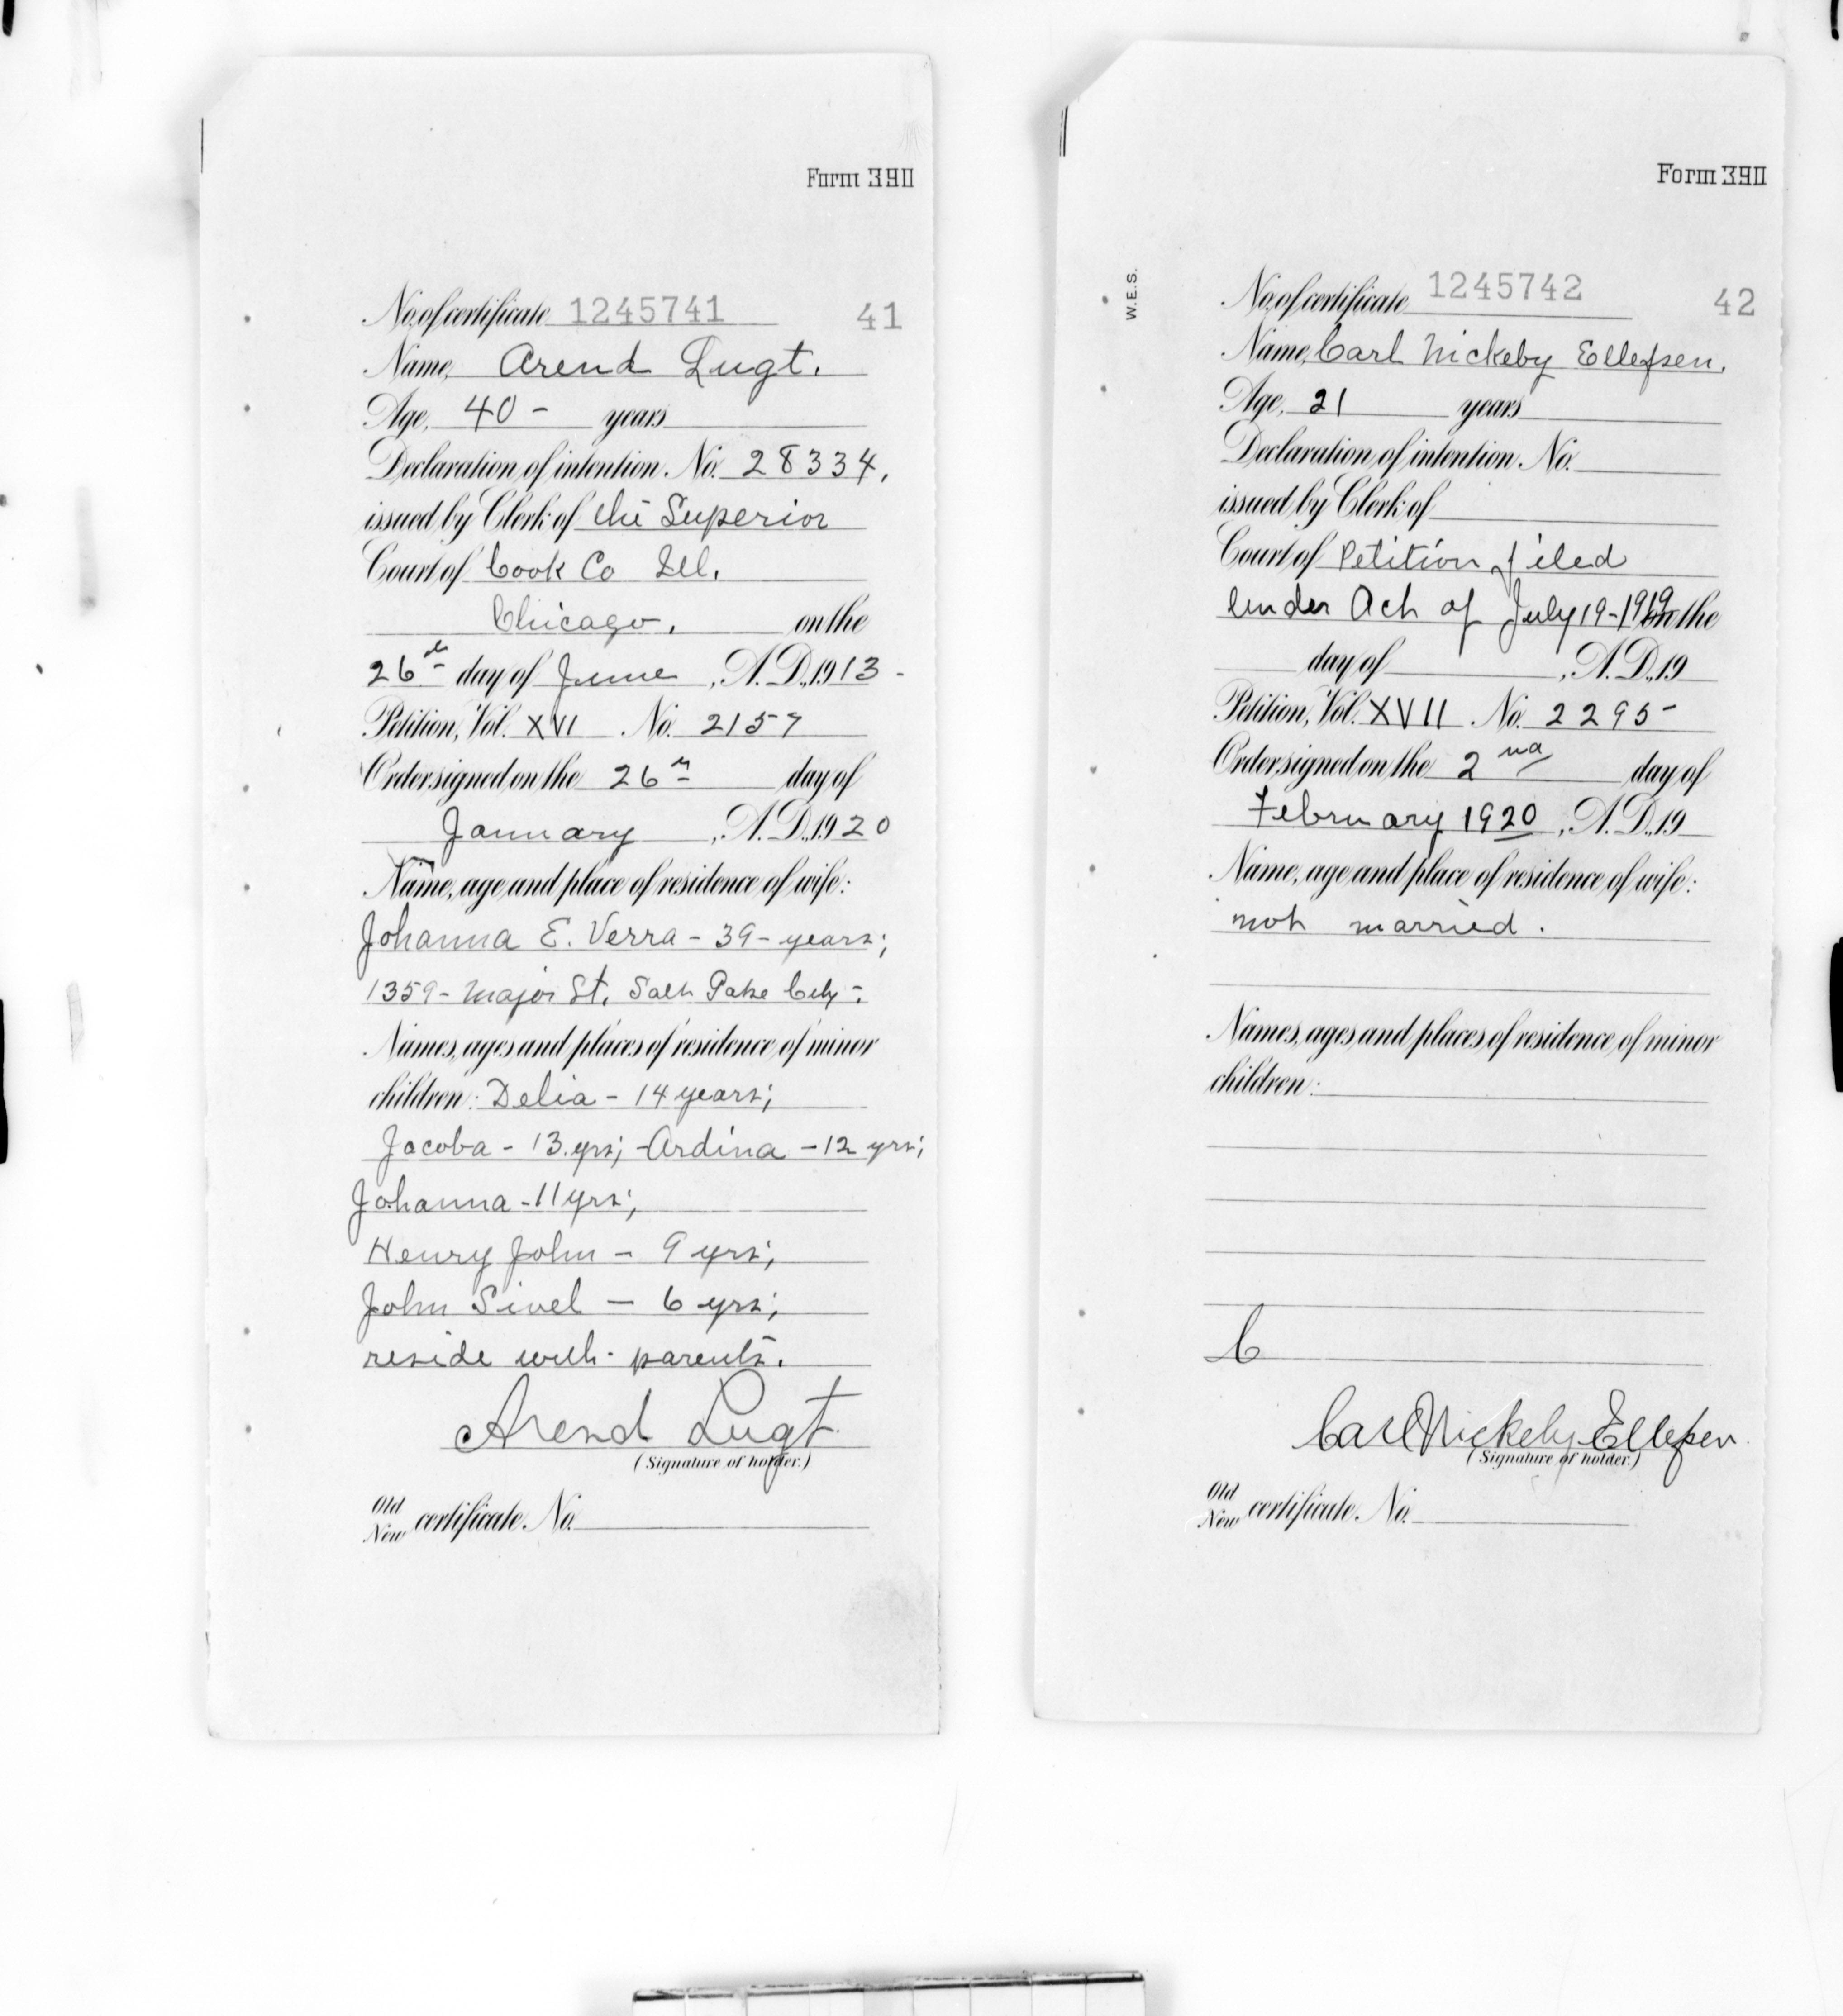 Form 390
No. of certificate 1245741 41
Name, Arend Lugt.
Age, 40 - years
Declaration of intention No. 28334,
issued by Clerk of the Superior
Court of Cook Co Ill.
Chicago, on the
26th day of June, A.D., 1913 -
Petition, Vol. XVI No. 2157
Order signed on the 26th day of
January, A.D., 1920
Name, age and place of residence of wife:
Johanna E. Verra - 39 - years;
1359 - Major St. Salt Lake City -
Names, ages and places of residence of minor
children: Delia - 14 years;
Jacoba - 13. yrs; - Ardina - 12 yrs;
Johanna - 11 yrs;
Henry John - 9 yrs;
John Sivel - 6 yrs;
reside with parents.
Arend Lugt
(Signature of holder.)
Old
New certificate No.
Form 390
W.E.S.
No. of certificate 1245742 42
Name, Carl Nickeby Ellefsen.
Age, 21 years
Declaration of intention No.
issued by Clerk of
Court of Petition filed
under Act of July 19-1919 on the
day of , A.D., 19
Petition, Vol. XVII No. 2295 -
Order signed on the 2nd day of
February 1920, A.D., 19
Name, age and place of residence of wife:
not married.
Names, ages and places of residence of minor
children:
C
Carl Nickeby Ellefsen
(Signature of holder.)
Old
New certificate No.